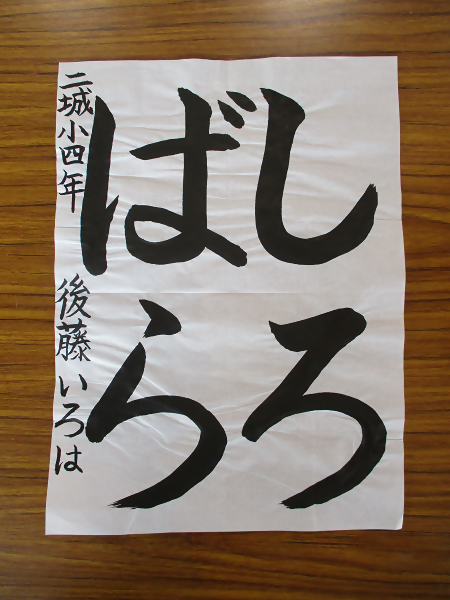 しろ
ばら
二城小四年 後藤いろは